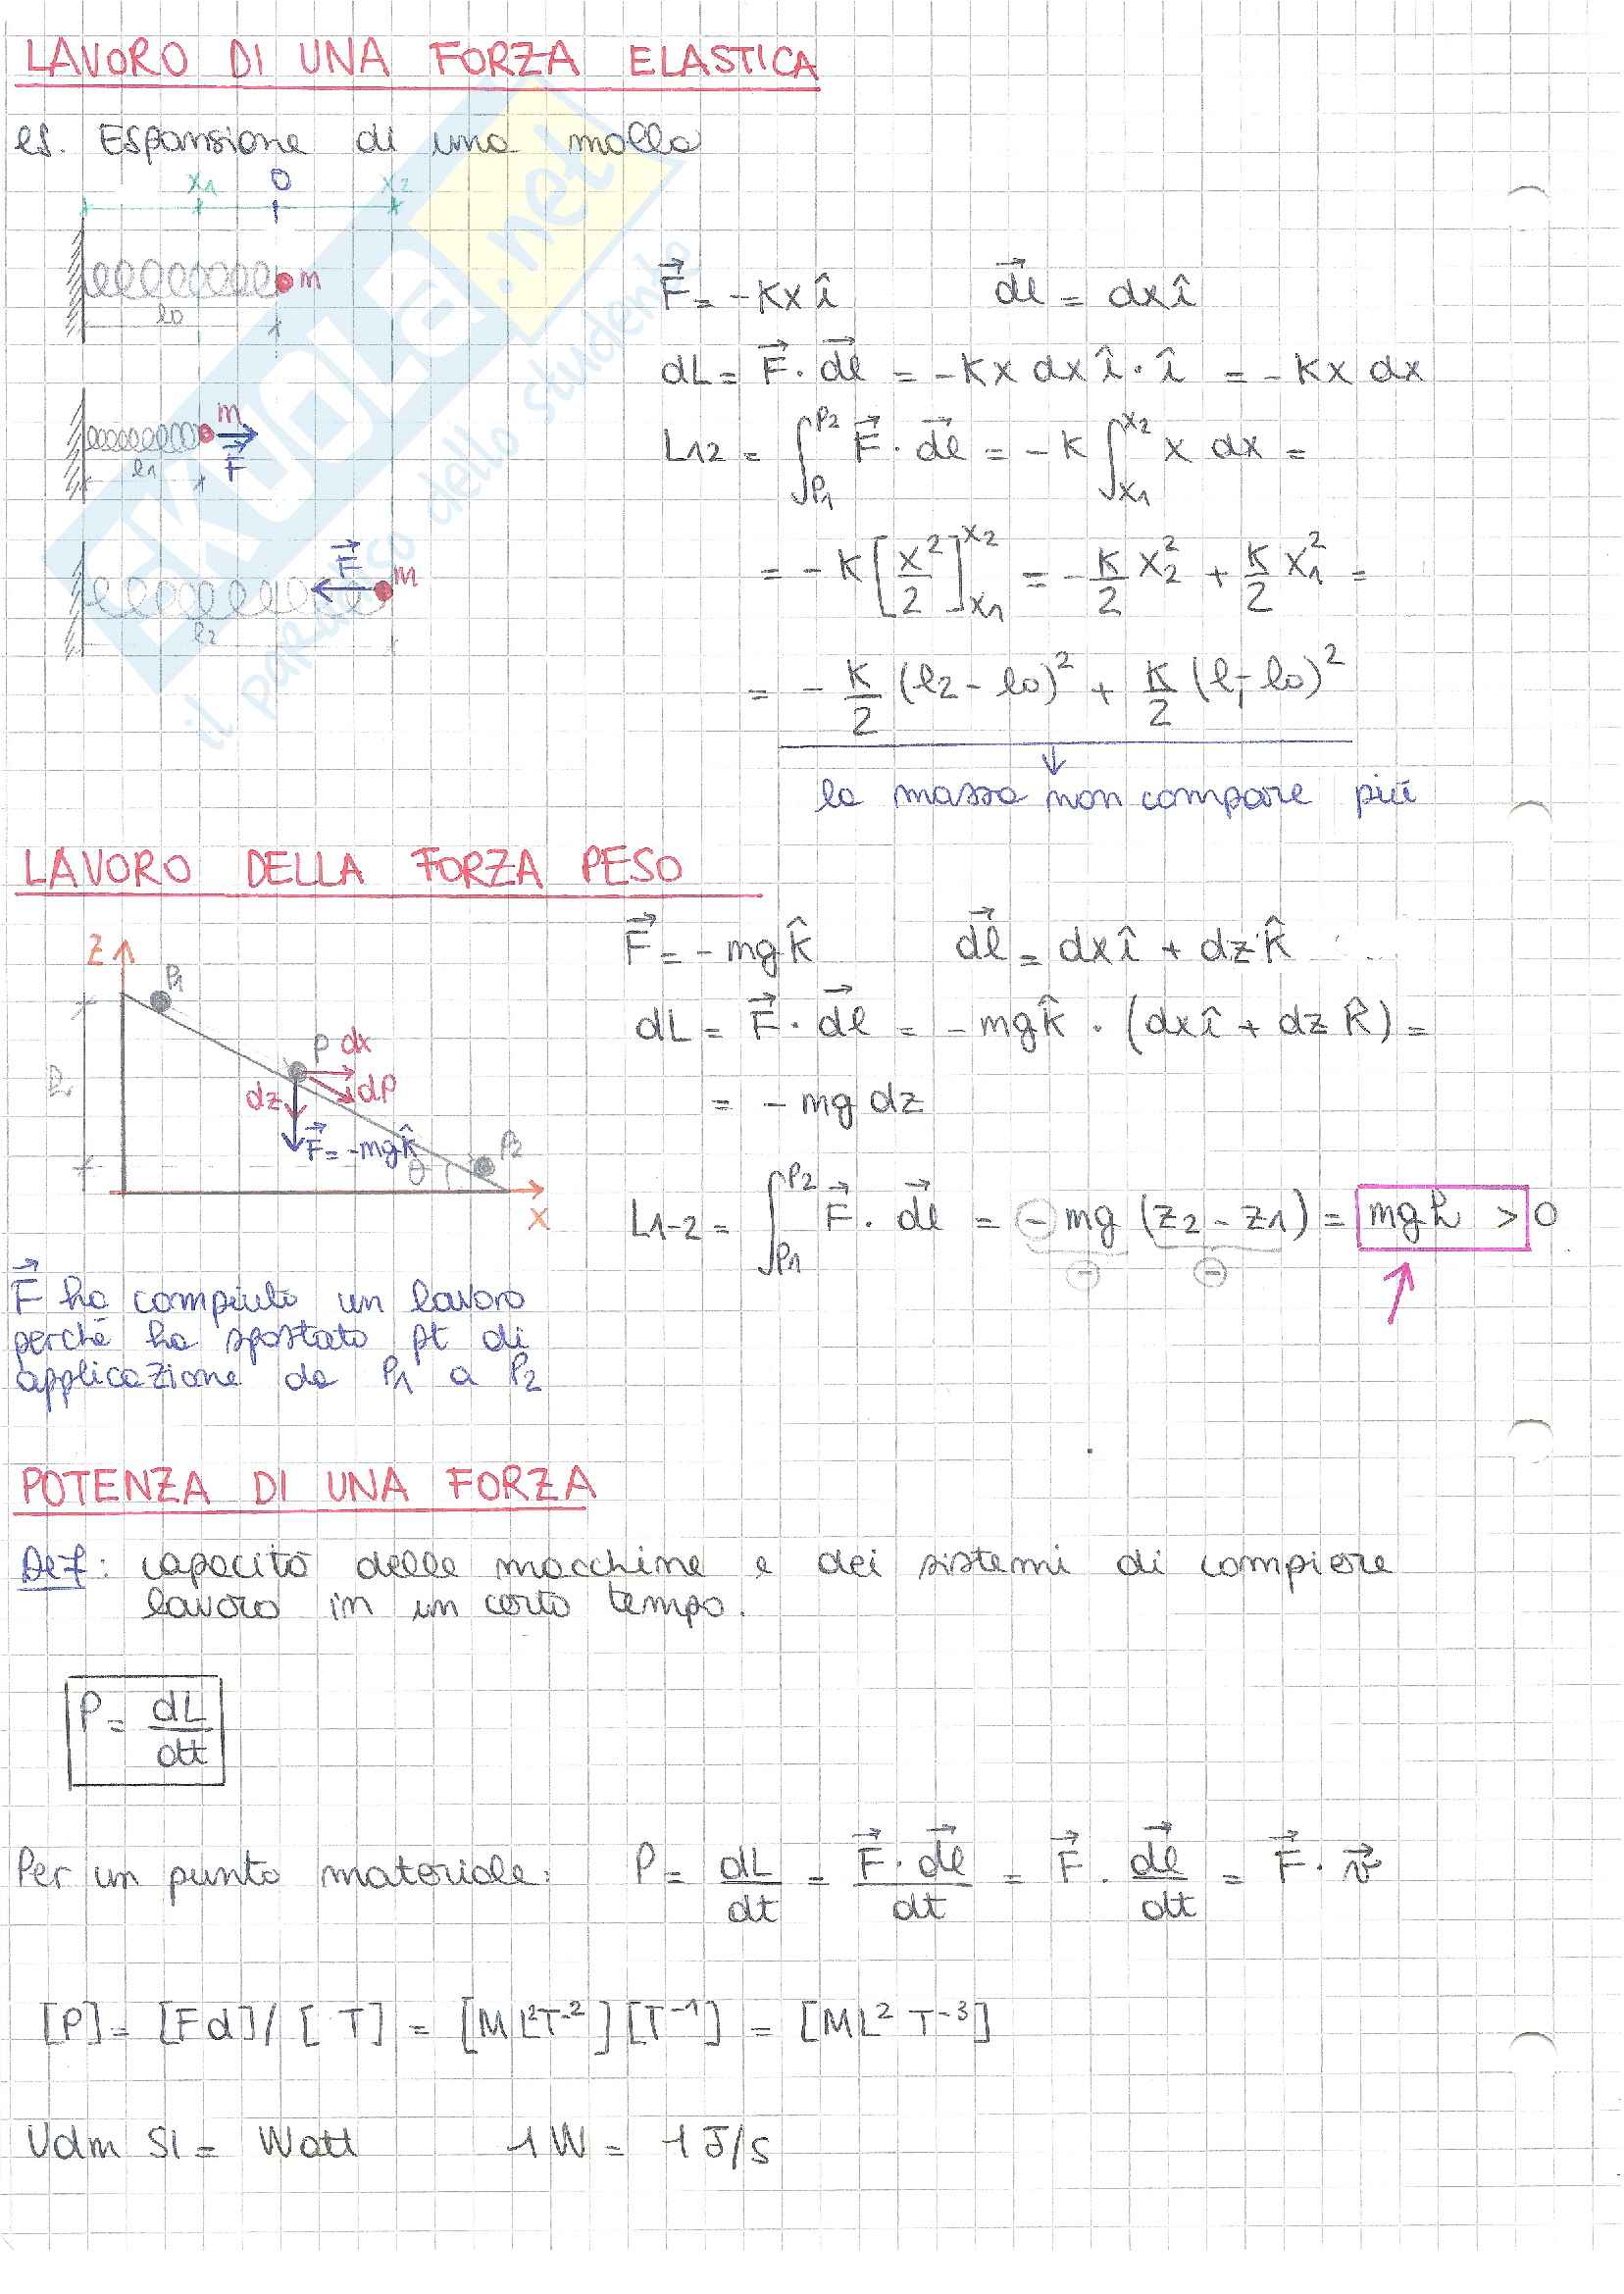 LAVORO DI UNA FORZA ELASTICA
es. Espansione di una molla
x₁ O x₂
m
l₀
F⃗ = -Kx î    dl⃗ = dx î
dL = F⃗ · dl⃗ = -Kx dx î · î = -Kx dx
m
F⃗
l₁
L₁₂ = ∫_P₁^P₂ F⃗ · dl⃗ = -K ∫_x₁^x₂ x dx =
F⃗
m
l₂
= -K [x²/2]_x₁^x₂ = -K/2 x₂² + K/2 x₁² =
= -K/2 (l₂ - l₀)² + K/2 (l₁ - l₀)²
↓
la massa non compare più
LAVORO DELLA FORZA PESO
F⃗ = -mg k̂    dl⃗ = dx î + dz k̂
dL = F⃗ · dl⃗ = -mg k̂ · (dx î + dz k̂) =
= -mg dz
L₁₋₂ = ∫_P₁^P₂ F⃗ · dl⃗ = -mg (z₂ - z₁) = mgh > 0
⊖ ⊖
Z
P₁
P dx
dz dP
h
F⃗ = -mg k̂
θ P₂
x
F⃗ ha compiuto un lavoro
perché ha spostato pt di
applicazione da P₁ a P₂
POTENZA DI UNA FORZA
Def: capacità delle macchine e dei sistemi di compiere
lavoro in un certo tempo.
P = dL/dt
Per un punto materiale: P = dL/dt = F⃗ · dl⃗/dt = F⃗ · dl⃗/dt = F⃗ · v⃗
[P] = [Fd]/[T] = [ML²T⁻²][T⁻¹] = [ML² T⁻³]
Udm SI = Watt    1W = 1 J/s
skuola.net
il paradiso dello studente